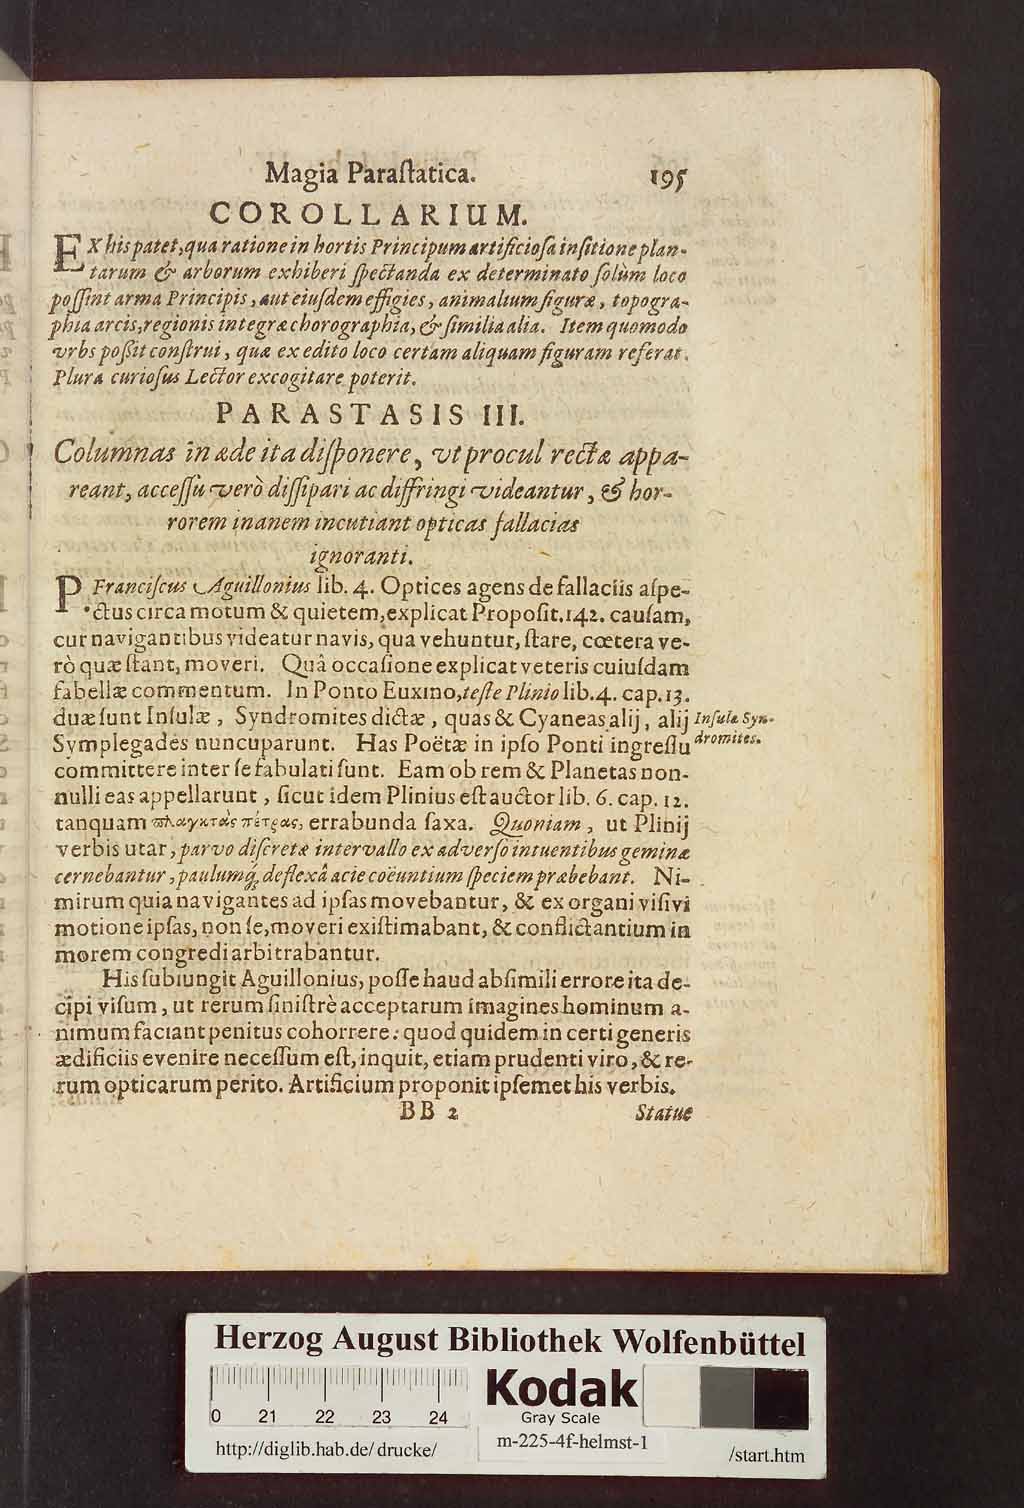 Magia Paraſtatica. 195
COROLLARIUM.
EX his patet, qua ratione in hortis Principum artificioſa inſitione plan-
tarum & arborum exhiberi ſpectanda ex determinato ſolùm loco
poſſint arma Principis, aut eiuſdem effigies, animalium figuræ, topogra-
phia arcis, regionis integræ chorographia, & ſimilia alia. Item quomodo
vrbs poßit conſtrui, quæ ex edito loco certam aliquam figuram referat.
Plura curioſus Lector excogitare poterit.
PARASTASIS III.
Columnas in æde ita diſponere, vt procul rectæ appa-
reant, acceſſu verò diſſipari ac diffringi videantur, & hor-
rorem inanem incutiant opticas fallacias
ignoranti.
P Franciſcus Aguillonius lib. 4. Optices agens de fallaciis aſpe-
ctus circa motum & quietem, explicat Propoſit. 142. cauſam,
cur navigantibus videatur navis, qua vehuntur, ſtare, cœtera ve-
rò quæ ſtant, moveri. Quâ occaſione explicat veteris cuiuſdam
fabellæ commentum. In Ponto Euxino, teſte Plinio lib. 4. cap. 13.
duæ ſunt Inſulæ, Syndromites dictæ, quas & Cyaneas alij, alij
Inſulæ Syn-
dromites.
Symplegades nuncuparunt. Has Poëtæ in ipſo Ponti ingreſſu
committere inter ſe fabulati ſunt. Eam ob rem & Planetas non-
nulli eas appellarunt, ſicut idem Plinius eſt auctor lib. 6. cap. 12.
tanquam πλαγκτὰς πέτρας, errabunda ſaxa. Quoniam, ut Plinij
verbis utar, parvo diſcretæ intervallo ex adverſo intuentibus geminæ
cernebantur, paulumq́; deflexâ acie coëuntium ſpeciem præbebant. Ni-
mirum quia navigantes ad ipſas movebantur, & ex organi viſivi
motione ipſas, non ſe, moveri exiſtimabant, & conflictantium in
morem congredi arbitrabantur.
His ſubiungit Aguillonius, poſſe haud abſimili errore ita de-
cipi viſum, ut rerum ſiniſtrè acceptarum imagines hominum a-
nimum faciant penitus cohorrere: quod quidem in certi generis
ædificiis evenire neceſſum eſt, inquit, etiam prudenti viro, & re-
rum opticarum perito. Artificium proponit ipſemet his verbis.
BB 2 Statue
Herzog August Bibliothek Wolfenbüttel
0 21 22 23 24
Kodak
Gray Scale
http://diglib.hab.de/drucke/ m-225-4f-helmst-1 /start.htm